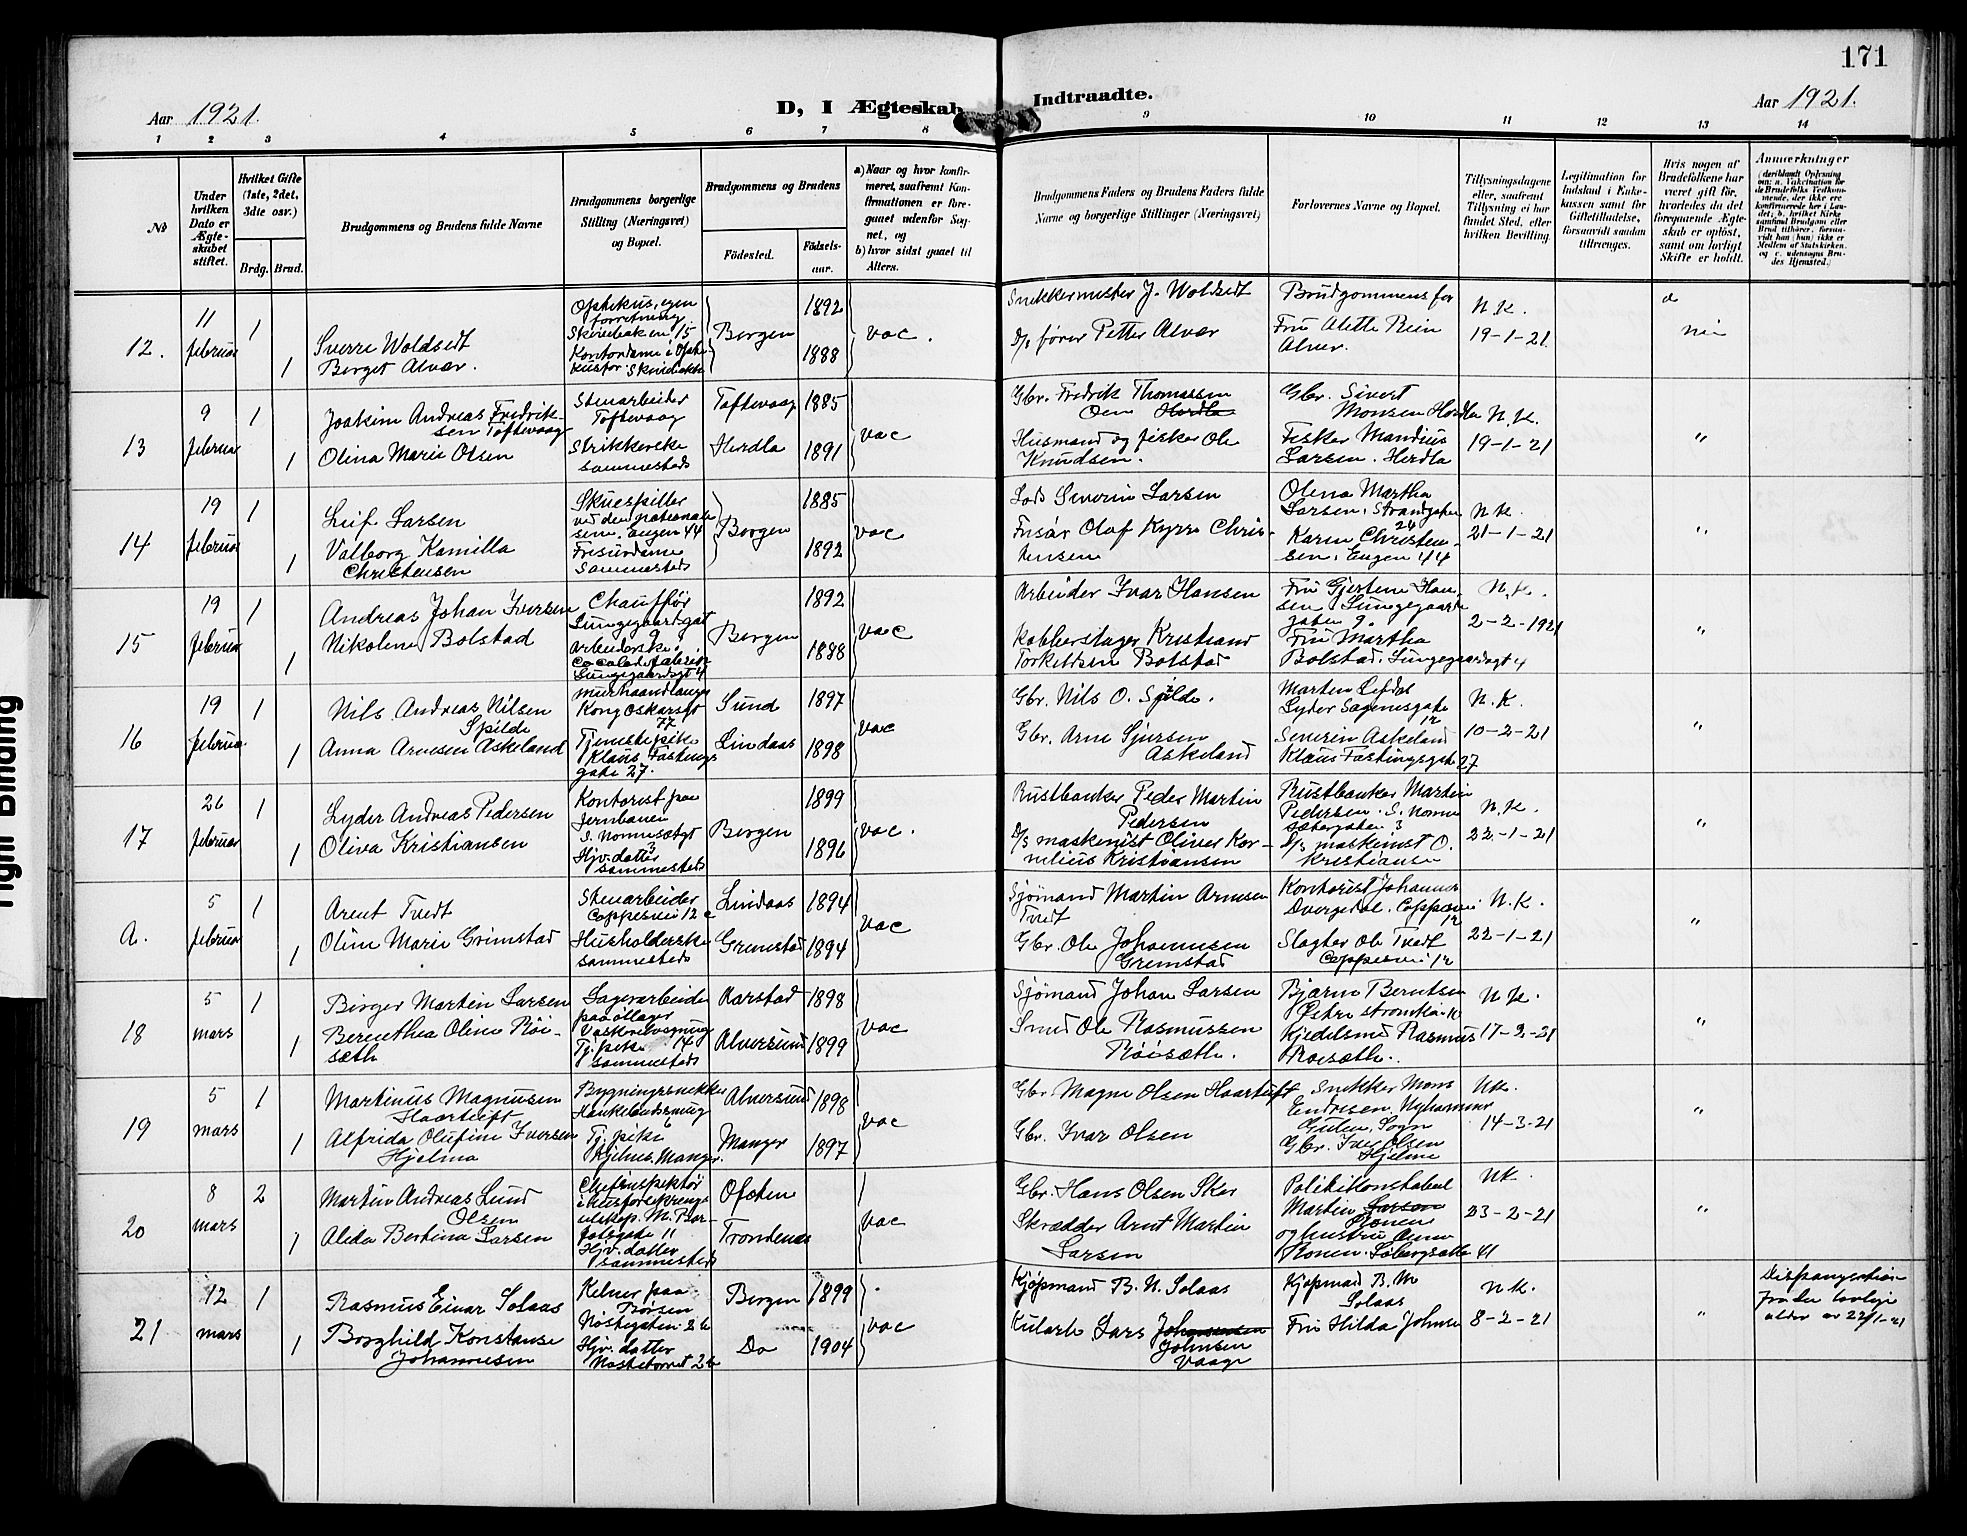 171
Aar 1921.
D, I Ægteskab
Indtraadte.
Aar 1921.
1 2 3 4 5 6 7 8 9 10 11 12 13 14
No
Under hvilken Dato er Ægteskabet stiftet.
Hvilket Gifte (1ste, 2det, 3dte osv.)
Brdg. Brud.
Brudgommens og Brudens fulde Navne
Brudgommens borgerlige Stilling (Næringsvei) og Bopæl.
Brudgommens og Brudens
Födested.
Födselsaar.
a) Naar og hvor konfirmeret, saafremt Konfirmationen er foregaaet udenfor Sognet, og
b) hvor sidst gaaet til Alters.
Brudgommens Faders og Brudens Faders fulde Navne og borgerlige Stillinger (Næringsvei)
Forlovernes Navne og Bopæl.
Tillysningsdagene eller, saafremt Tillysning ei har fundet Sted, efter hvilken Bevilling.
Legitimation for Indskud i Enkekassen samt for Giftetilladelse, forsaavidt saadan tiltrænges.
Hvis nogen af Brudefolkene har været gift för, hvorledes da det foregaaende Ægteskab er oplöst, samt om lovligt Skifte er holdt.
Anmerkninger
12. 11 februar 1 1
Sverre Woldsedt
Borget Alvær.
Optikus, egen forretning
Skivebaken 15
Bergen
1892
1888
vac.
Snekkermester J. Woldsedt
D/s fører Petter Alvær
Brudgommens far
Fru Alette Rein Alver.
N.K.
19-1-21
nei
13 9 februar 1 1
Joakim Andreas Fredriksen Toftevaag
Olina Marie Olsen
Stenarbeider Toftevaag
Strikkerske sammesteds
Toftevaag 1885
Herdla 1891
vac
Gbr. Fredrik Thomassen Oen Herdla
Husmand og fisker Ole Knudsen.
Gbr. Sivert Monsen Herdla
Fisker Mandius Larsen. Herdla
N.K.
19-1-21
"
14 19 februar 1 1
Leif Larsen
Valborg Kamilla Christensen
Skuespiller ved den nationale scene. Engen 44
Frisurdame sammesteds
Bergen
1885
1892
vac
Lods Severin Larsen
Frisør Olaf Kyrre Christensen
Olena Martha Larsen, Strandgaten 24
Karen Christensen, Engen 44
N.K.
21-1-21
"
15 19 februar 1 1
Andreas Johan Iversen
Nikoline Bolstad
Chauffør
Lungegaardsgat 9
arbeiderske,
Lungegaardsgt 4
Bergen
1892
1888
vac
Arbeider Ivar Hansen
Kobberslager Kristiand Torkeldsen Bolstad
Fru Gjertine Hansen Lungegaardsgaten 9.
Fru Martha Bolstad. Lungegaardsgt 4
N.K.
2-2-1921
"
16 19 februar. 1 1
Nils Andreas Nilsen Spilde
Anna Arnesen Askeland
Murhaandlanger
Kong Oskarsgt 77
Tjenestepike
Klaus Fastingsgate 27.
Sund 1897
Lindaas 1898
vac
Gbr. Nils O. Spilde.
Gbr. Arne Sjursen Askeland
Lyder Sagensgate 12
Severin Askeland
Klaus Fastingsgate 27
N.K.
10-2-21
"
17 26 februar 1 1
Lyder Andreas Pedersen
Oliva Kristiansen
Kontorist paa Jernbanen
Hjv. datter sammesteds
Bergen
1899
1896
vac.
Rustbanker Peder Martin Pedersen
D/s maskinist Oliver Kornelius Kristiansen
Rustbanker Martin Pedersen. S.
D/s maskinist O. Kristiansen
N.K.
22-1-21
"
a. 5 februar 1 1
Arent Tvedt
Oline Marie Grimstad
Stenarbeider
Coppesvei 12 c
Husholderske sammesteds
Lindaas 1894
Grimstad 1894
vac
Sjømand Martin Arnesen Tvedt
Gbr. Ole Johannesen Grimstad
Kontorist Johannes Dvergedal. Coppesvei 12
Slagter Ole Tvedt Coppesvei 12
N.K.
22-1-21
"
18 5 mars 1 1
Birger Martin Larsen
Berenthea Oline Röisæth
Lagerarbeider paa öllager
Tj. pike sammesteds
Aarstad 1898
Alversund 1899
vac
Sjømand Johan Larsen
Smed Ole Rasmussen Röisæth.
Bjarne Berntsen
Kjedelsmed Rasmus Roisæth.
N.K.
17-2-21
"
19 5 mars 1 1
Martinus Magnusen Haartveit
Alfrida Olufine Iversen Hjelma
Bygningssnekker
Tj. pike
Hjelme. Manger.
Alversund 1898
Manger 1897
vac
Gbr. Magne Olsen Haartveit
Gbr. Ivar Olsen
Snekker Mons Endresen
Gulen, Sogn
Gbr. Iver Olsen Hjelme
N.K.
14-3-21
"
20 8 mars 2 1
Martin Andreas Lund Olsen
Alida Bertina Larsen
Hjv. datter sammesteds
Ofoten
Trondenes
vac
Gbr. Hans Olsen Skar
Skrædder Arnt Martin Larsen
Politikonstabel Martin Larsen Ronen
og hustru Anna Ronen
N.K.
23-2-21
"
21 12 mars 1 1
Rasmus Einar Solaas
Borghild Konstanse Johannesen
Kelner paa Børsen
Nöstegaten 26
Hjv. datter
Nöstetorvet 26
Bergen 1899
Do 1904
vac
Kjøpmand B. N. Solaas
Kularb. Lars Johannesen Johnsen Vaage
Kjøpmand B. M Solaas
Fru Hilda Johnsen
N.K.
8-2-21
"
Dispangertion fra den lovlige alder av 22/1-21
Tight Binding